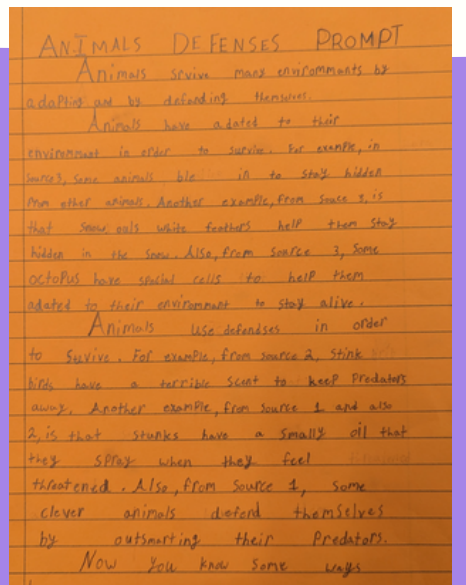 ANIMALS DEFENSES PROMPT
Animals srvive many enviromments by
adapting and by defending themselves.
Animals have adated to their
enviromment in order to survie. For example, in
source 3, some animals ble in to stay hidden
from other animals. Another example, from souce 3, is
that snow ouls white feathers help them stay
hidden in the snow. Also, from source 3, some
octopus have spacial cells to help them
adated to their enviromnant to stay alive.
Animals use defendses in order
to survive. For example, from source 2, stink
birds have a terrible scent to keep predators
away. Another example, from source 1 and also
2, is that stunks have a smally oil that
they spray when they feel
threatened. Also, from source 1, some
clever animals defend themselves
by outsmarting their predators.
Now you know some ways